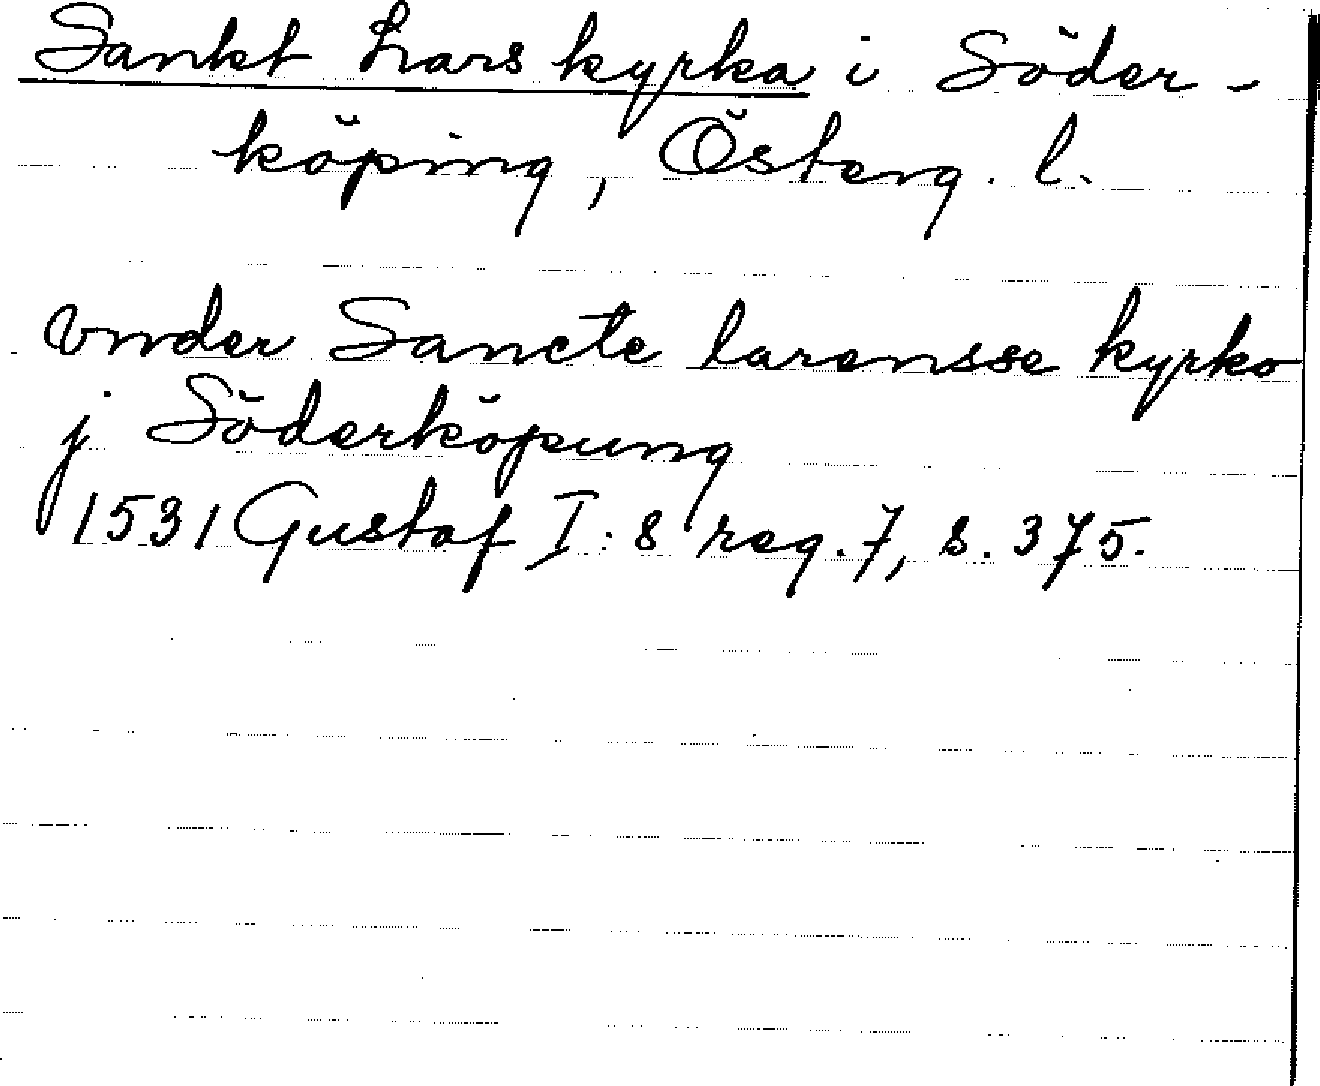 Sankt Lars kyrka i Söder-
köping, Österg. l.
vnder Sancte larensse kyrko
j Söderköpung
1531 Gustaf I:s reg. 7, s. 375.